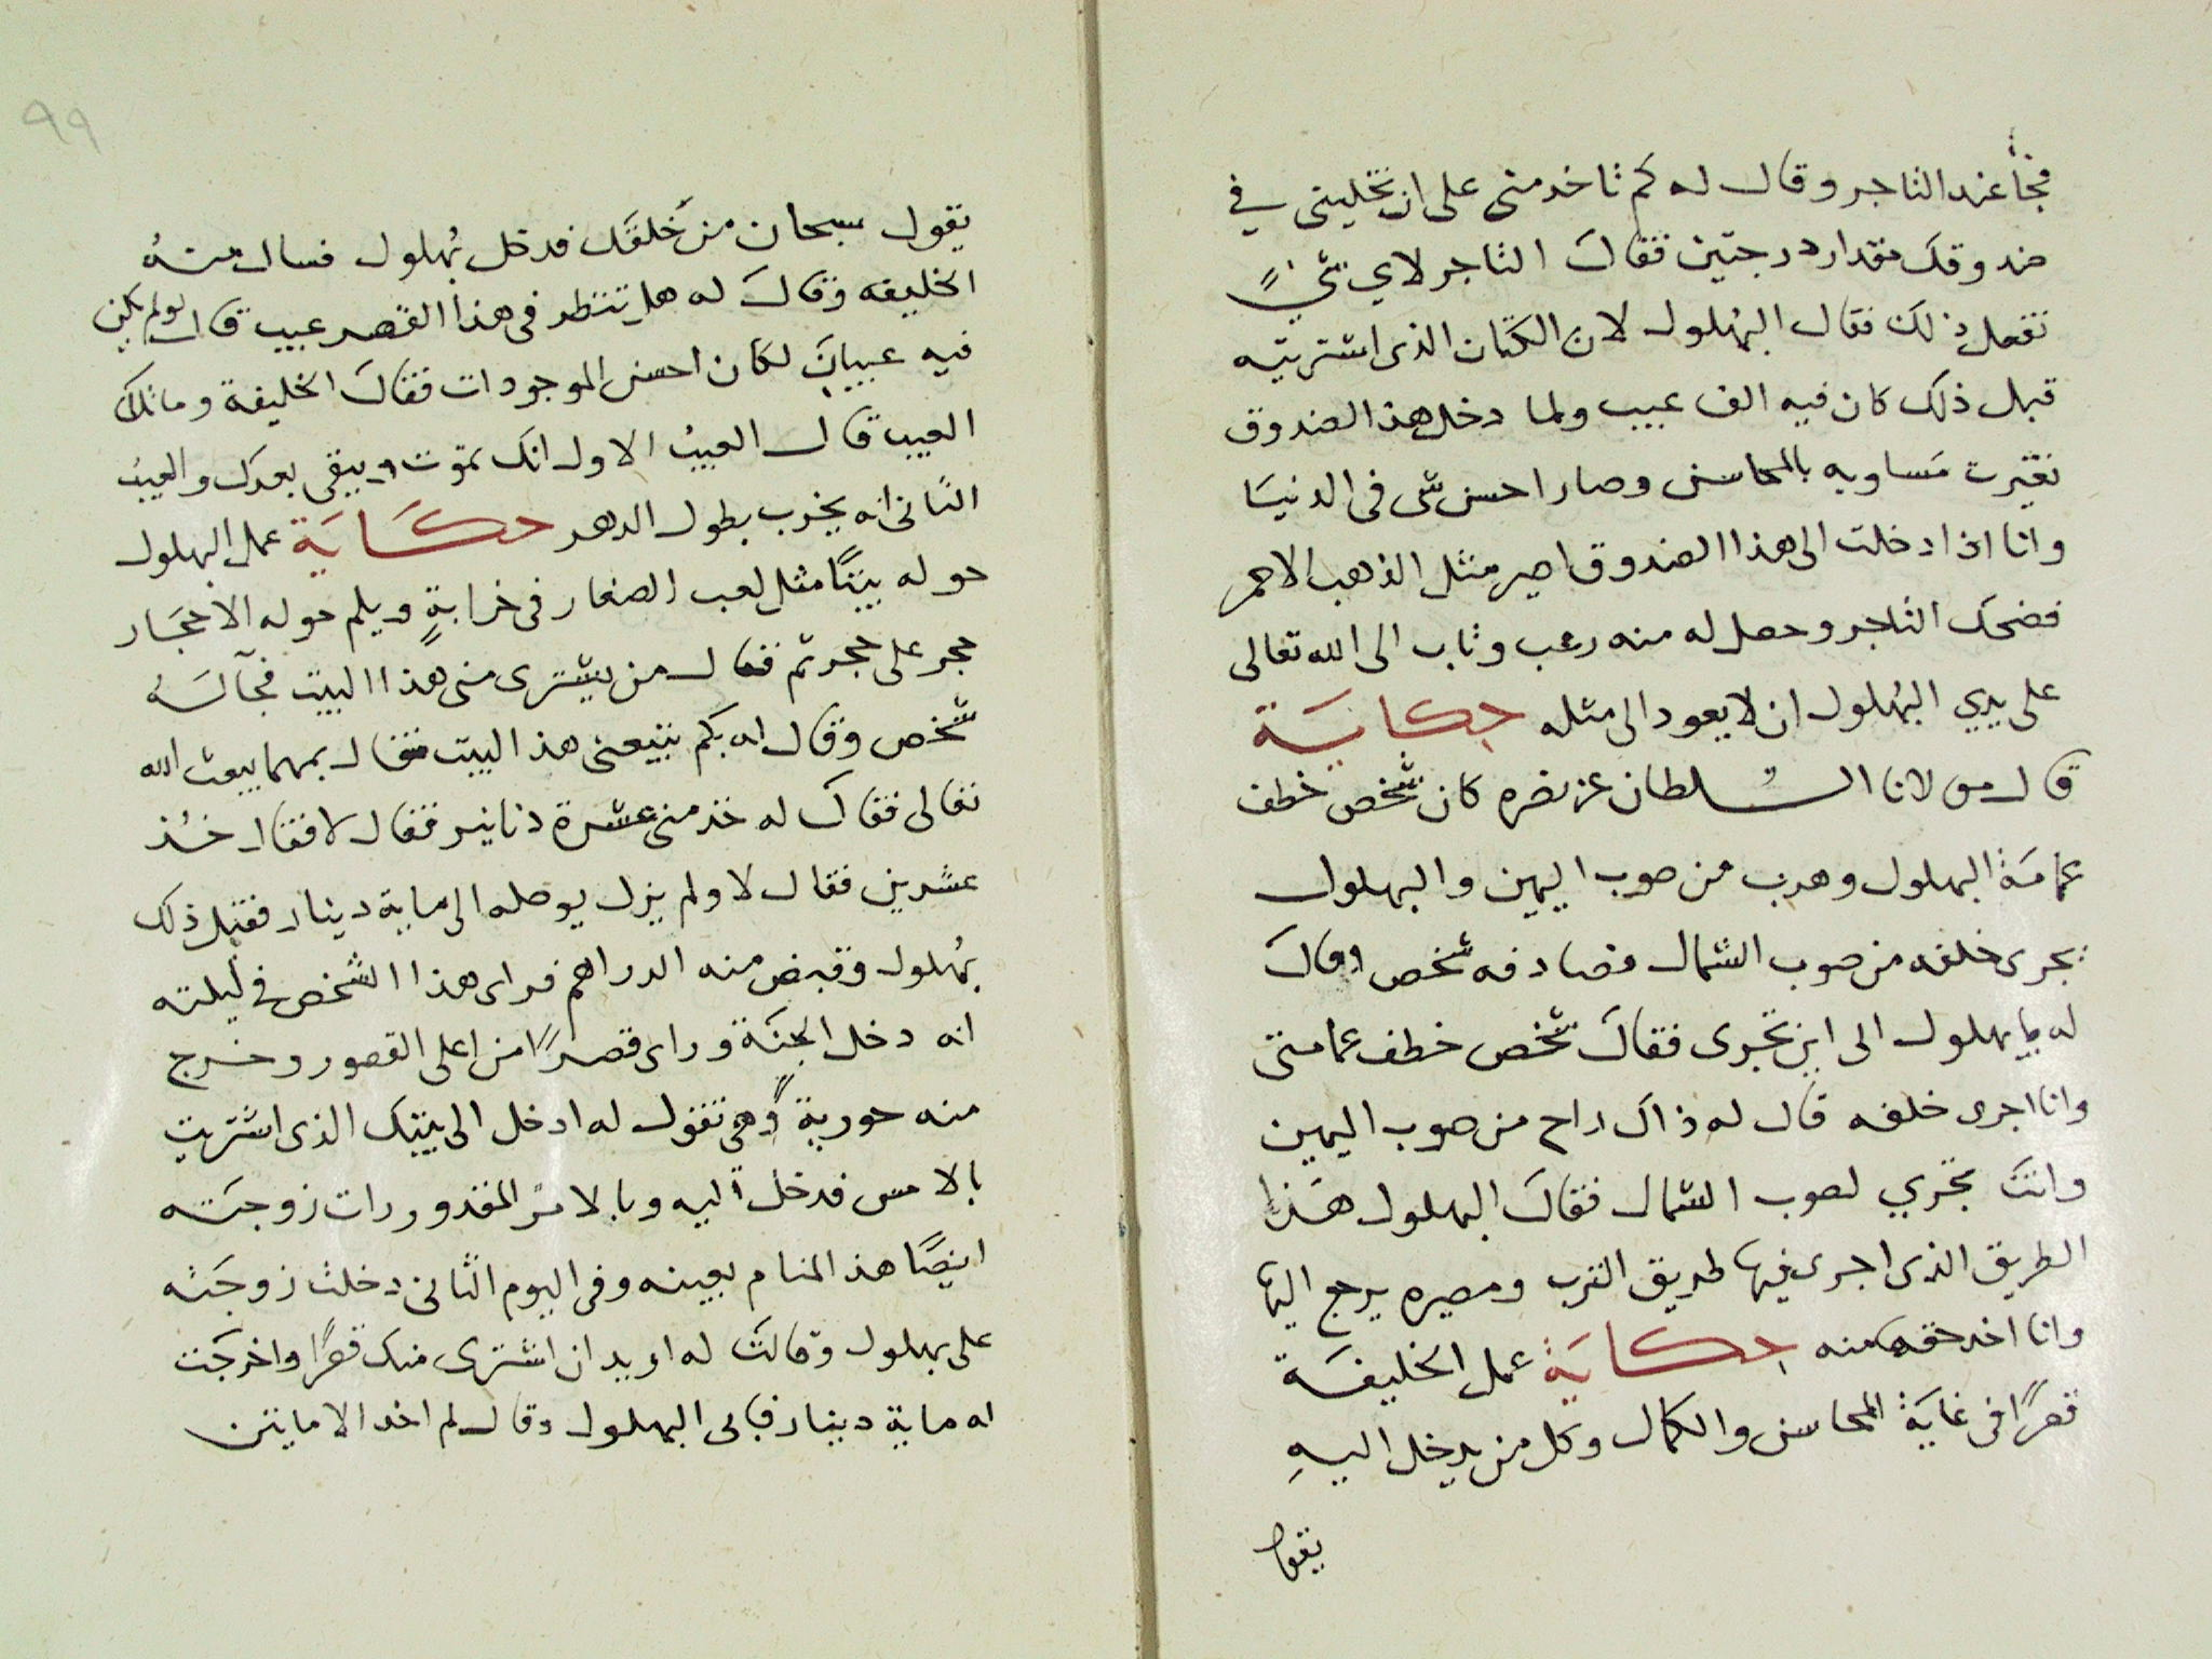 فجأ عند التاجر وقال له كم تاخد منى على ان تخلينى في
صندوقك مقدار درجتين فقال التاجر لاي شيءٍ
تفعل ذلك فقال البُهلول لان الكتان الذى اشتريته
قبل ذلك كان فيه الف عيب ولما دخل هذ الصندوق
تغيّرت مَساويه بالمحاسن وصار احسن شى فى الدنيَا
وانا اذا دخلت الى هذا الصندوق اصير مثل الذهب الاحمر
فضحك التاجر وحصل له منه رعب وتاب الى الله تعالى
على يدي البُهلول ان لا يعود الى مثله حكايَة
قال مولانا السُلطان عز نصره كان شخص خطف
عمامَة البهلول وهرب من صوب اليمين والبهلول
يجرى خلفه من صوب الشمال فصادفه شخص وقالَ
له يا بهلول الى اين تجرى فقالَ شخص خطف عمامتى
وانا اجرى خلفه قال له ذاك راح من صوب اليمين
وانتَ تجري لصوب الشمال فقالَ البهلول هَذا
الطريق الذى اجرى فيها طريق الترب ومصيره يرجع اليها
وانا اخد حقى منه حكايَة عمل الخليفَة
قصرًا فى غايَة المحاسن والكمال وكل من يدخل اليهِ
يقول
٩٩
يقول سبحان من خَلقَك فدخل بُهلول فسال منهُ
الخليفه وقالَ له هل تنظر فى هذا القصر عيب قال لو لم يكن
فيه عيبانِ لكان احسن الموجودات فقالَ الخليفة وما تلك
العيب قال العيبُ الاول انك تموت ويبقى بعدك والعيبُ
الثانى انه يخرب بطول الدهر حكَايَة عمل البهلول
حوله بيتًا مثل لعب الصغار فى خرابةٍ ويلم حوله الاحجَار
حجر على حجر ثم فقال من يشترى منى هذا البيت فجآلَهُ
شخص وقال له بكم تبيعنى هذ البيت فقال بمهما يبعث الله
تعالى فقالَ له خذ منى عشرة دنانير فقال لا فقال خُذ
عشرين فقال لا ولم يزل يوصله الى ماية دينار فقبل ذلك
بُهلول وقبض منه الدراهم فراى هذا الشخص في ليلته
انه دخل الجنَة وراى قصرًا من اعلى القصور وخرج
منه حوريةً وهى تقول له ادخل الى بيتك الذى اشتريت
بالامس فدخل اليه وبالامر المقدور رات زوجَته
ايضًا هذ المنام بعينه وفى اليوم الثانى دخلت زوجَته
على بهلول وقالتَ له اريد ان اشترى منك قصرًا واخرجَت
له ماية دينار فابى البهلول وقال لم اخد الا مايتن